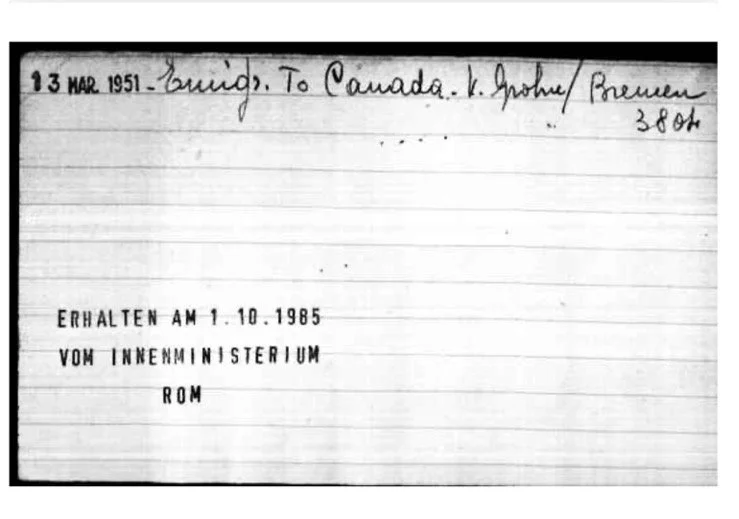 13 MAR. 1951 - Emigr. To Canada. V. Grohn/ Bremen
ERHALTEN AM 1.10.1985
VOM INNENMINISTERIUM
ROM